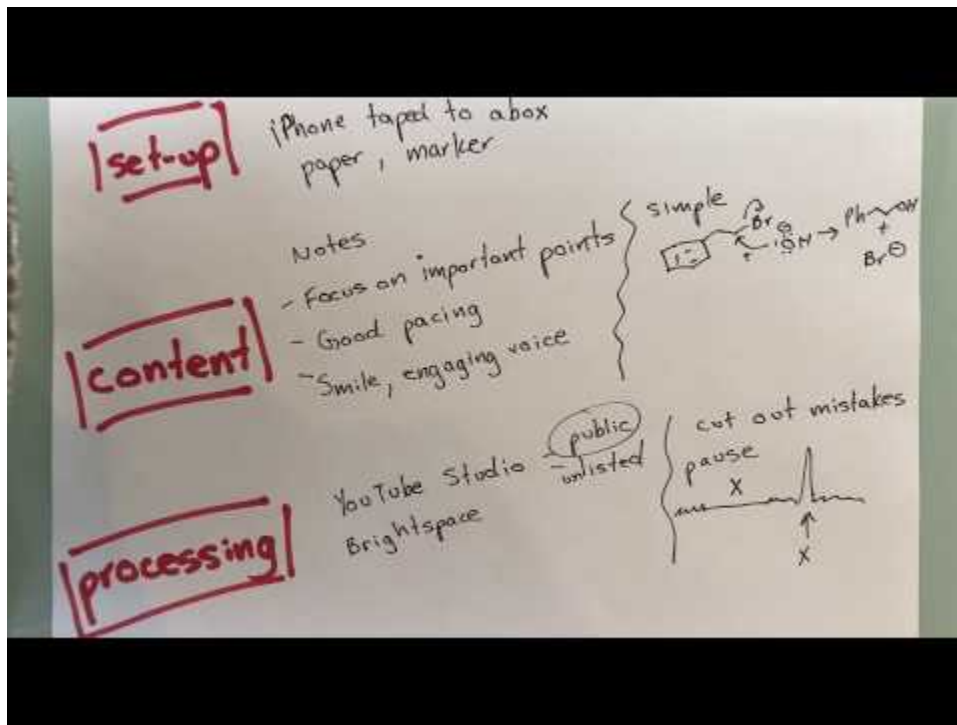 set-up
iPhone taped to a box
paper, marker
content
Notes
- Focus on important points
- Good pacing
- Smile, engaging voice
simple
Br
Ph OH
+
Br⊖
processing
YouTube Studio - public
- unlisted
Brightspace
cut out mistakes
pause
X
X